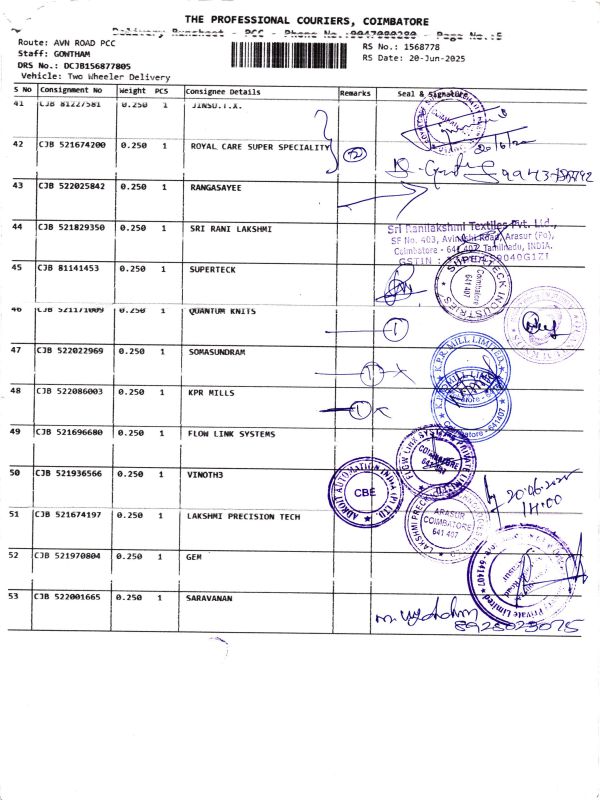 THE PROFESSIONAL COURIERS, COIMBATORE
Delivery Runsheet - PCC - Phone No.:8047080280 - Page No.:5
Route: AVN ROAD PCC
Staff: GONTHAM
DRS No.: DCJB156877805
Vehicle: Two Wheeler Delivery
RS No.: 1568778
RS Date: 20-Jun-2025
S No Consignment No Weight PCS Consignee Details Remarks Seal & Signature
41 CJB 81227581 0.250 1 JINSO.T.X.
42 CJB 521674200 0.250 1 ROYAL CARE SUPER SPECIALITY
43 CJB 522025842 0.250 1 RANGASAYEE
44 CJB 521829350 0.250 1 SRI RANI LAKSHMI
Sri Ranilakshmi Textiles Pvt. Ltd.,
SF No. 403, Avinashi Road, Arasur (Po),
Coimbatore - 641 407 Tamilnadu, INDIA.
GSTIN :
45 CJB 81141453 0.250 1 SUPERTECK
SUPERTECK INDUSTRIES
Coimbatore
641 407
46 CJB 521171009 0.250 1 QUANTUM KNITS
1
47 CJB 522022969 0.250 1 SOMASUNDRAM
1 x
K.P.R. MILL LIMITED
48 CJB 522086003 0.250 1 KPR MILLS
1 x
49 CJB 521696680 0.250 1 FLOW LINK SYSTEMS
FLOW LINK SYSTEMS PRIVATE LIMITED
COIMBATORE
50 CJB 521936566 0.250 1 VINOTH3
CBE
20.06.2025
14:00
51 CJB 521674197 0.250 1 LAKSHMI PRECISION TECH
ARASUR
COIMBATORE
641 407
52 CJB 521970804 0.250 1 GEM
Private Limited
53 CJB 522001665 0.250 1 SARAVANAN
8925023075